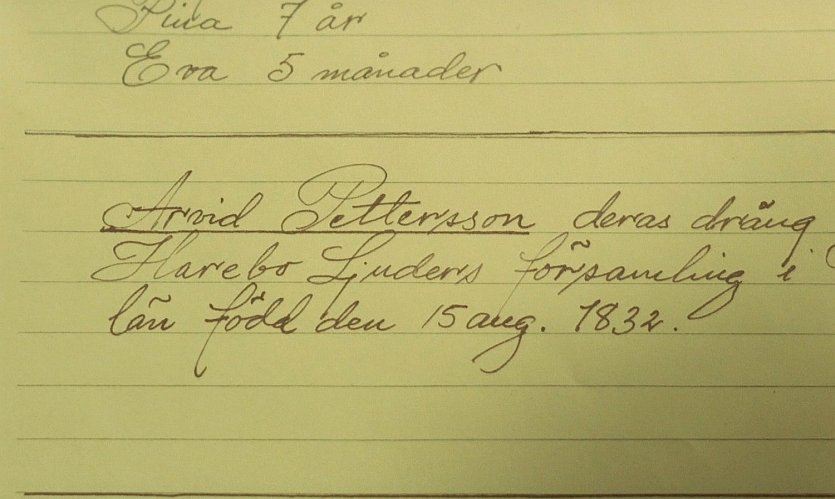 Pina 7 år
Eva 5 månader
Arvid Pettersson deras dräng
Harebo Ljuders församling i
län född den 15 aug. 1832.